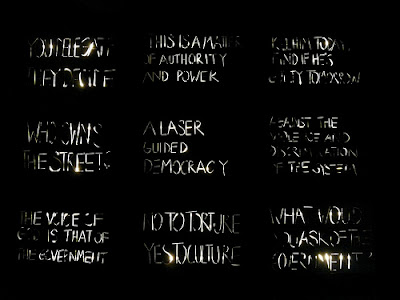 YOU DELEGATE
THEY DECIDE
THIS IS A MATTER
OF AUTHORITY
AND POWER
KILL HIM TODAY
FIND IF HE'S
GUILTY TOMORROW
WHO OWNS
THE STREETS
A LASER
GUIDED
DEMOCRACY
AGAINST THE
VIOLENCE AND
DISCRIMINATION
OF THE SYSTEM
THE VOICE OF
GOD IS THAT OF
THE GOVERNMENT
NO TO TORTURE
YES TO CULTURE
WHAT WOULD
YOU ASK OF THE
GOVERNMENT?